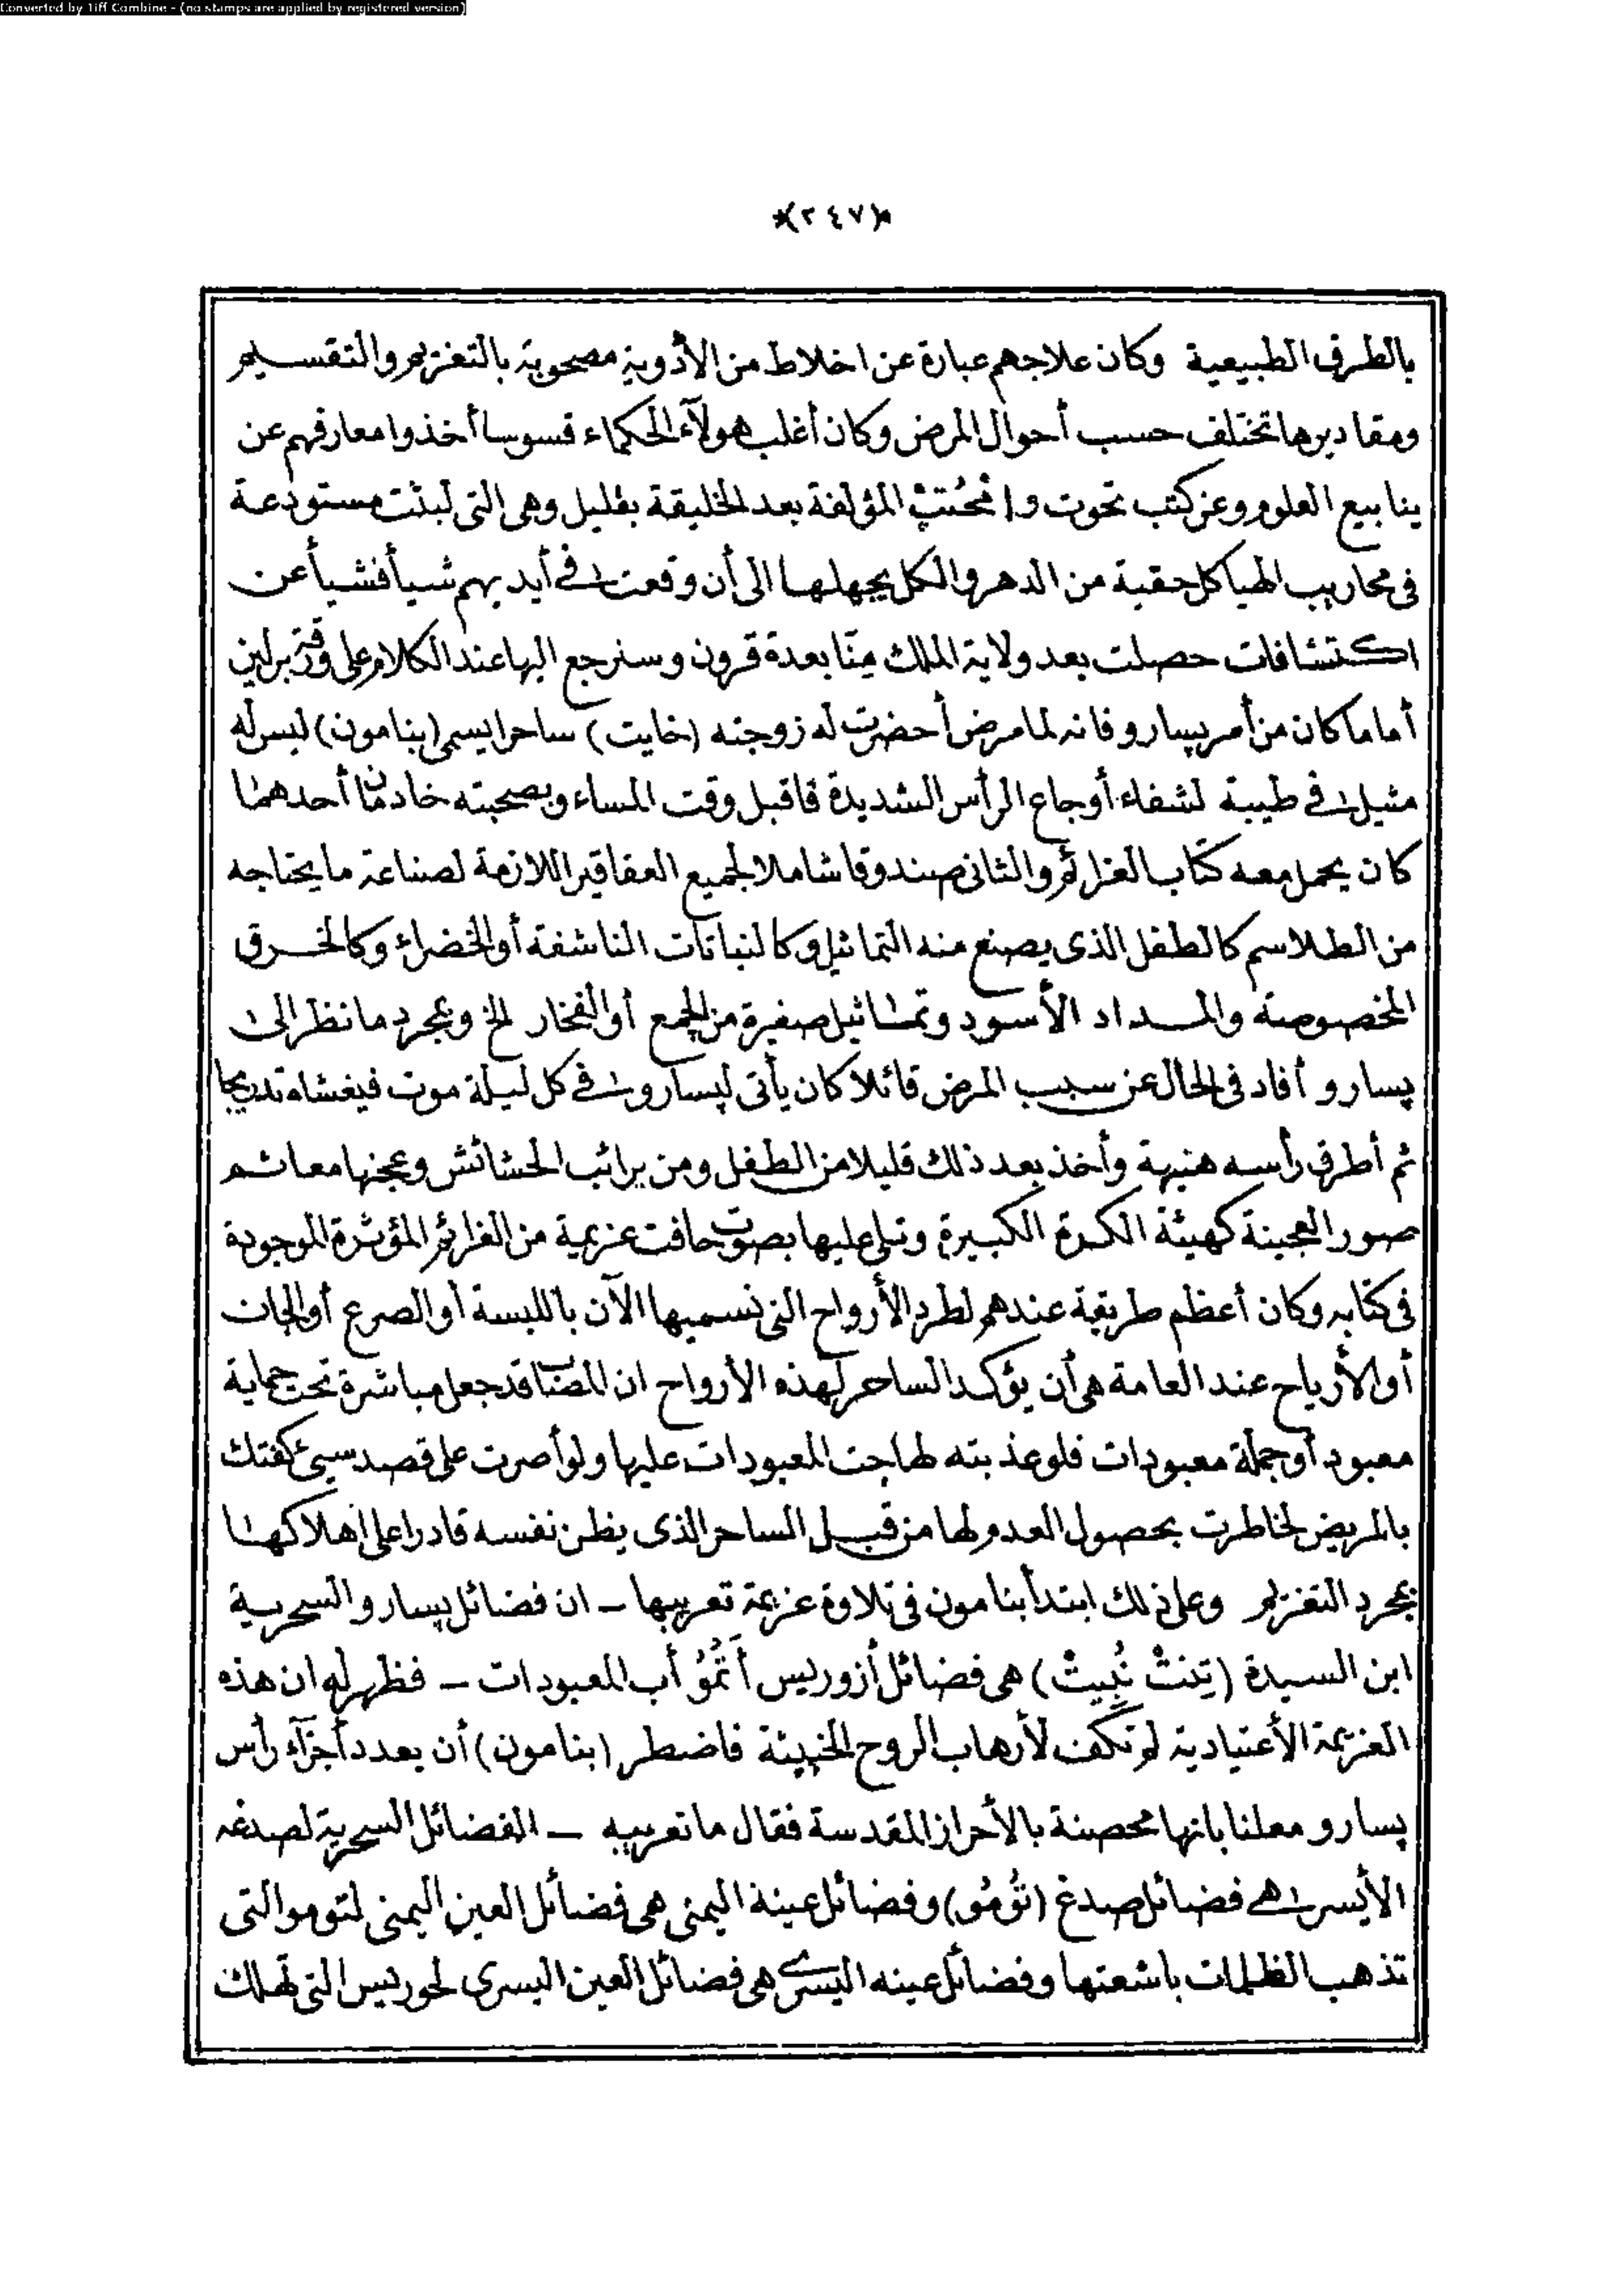 Converted by Tiff Combine - (no stamps are applied by registered version)
*(٢٤٧)*
بالطرق الطبيعية وكان علاجهم عبارة عن اخلاط من الأدوية مصحوبة بالتعزيم والتقسيم
ومقاديرها تختلف حسب أحوال المرض وكان أغلب هولآء الحكماء قسوسا أخذوا معارفهم عن
ينابيع العلوم وعن كتب تحوت و المؤلفة بعد الخليقة بقليل وهى التى لبثت مستودعة
فى محاريب الهياكل حقبة من الدهر والكل يجهلها الى أن وقعت فى أيديهم شيأ فشيأ عن
اكتشافات حصلت بعد ولاية الملك مِنَا بعدة قرون وسنرجع اليها عند الكلام على ورقة برلين
أما ما كان من أمر پسارو فانه لما مرض أحضرت له زوجته (خايت) ساحرا يسمى (بنامون) ليس له
مثيل فى طيبة لشفاء أوجاع الرأس الشديدة فاقبل وقت المساء وبصحبته خادمان أحدهما
كان يحمل معه كتاب العزائم والثانى صندوقا شاملا لجميع العقاقير اللازمة لصناعة ما يحتاجه
من الطلاسم كالطفل الذى يصنع منه التماثيل وكالنباتات الناشفة أو الخضراء وكالخرق
المخصوصة والمداد الأسود وتماثيل صغيرة من الشمع أو الفخار الخ وبمجرد ما نظر الى
پسارو أفاد فى الحال عن سبب المرض قائلا كان يأتى لپسارو فى كل ليلة موت فيغشاه تدريجا
ثم أطرق رأسه هنيهة وأخذ بعد ذلك قليلا من الطفل ومن برائب الحشائش وعجنها معا ثم
صور العجينة كهيئة الكرة الكبيرة وتلى عليها بصوت خافت عزيمة من العزائم المؤثرة الموجودة
فى كتابه وكان أعظم طريقة عندهم لطرد الأرواح التى نسميها الآن باللبسة أو الصرع أو الجان
أو الأرياح عند العامة هى أن يؤكد الساحر لهذه الأرواح ان المصاب قد جعل مباشرة تحت حماية
معبود أو جملة معبودات فلو عذبته لهاجت المعبودات عليها ولو أصرت على قصد سيئ كفتك
بالمريض لخاطرت بحصول العدم لها من قبل الساحر الذى يظن نفسه قادرا على اهلاكها
بمجرد التعزيم وعلى ذلك ابتدأ بنامون فى تلاوة عزيمة تعريبها – ان فضائل پسارو السحرية
ابن السيدة (تِنتْ نُبِيتْ) هى فضائل أزوريس أَتُمُو أب المعبودات – فظهر له ان هذه
العزيمة الأعتيادية لم تكف لأرهاب الروح الخبيثة فاضطر (بنامون) أن يعدد أجزآء رأس
پسارو معلنا بانها محصنة بالأحراز المقدسة فقال ما تعريبه – الفضائل السحرية لصدغه
الأيسر هى فضائل صدغ (تُومُو) وفضائل عينه اليمنى هى فضائل العين اليمنى لتومو التى
تذهب الظلمات باشعتها وفضائل عينه اليسرى هى فضائل العين اليسرى لحوريس التى تهلك